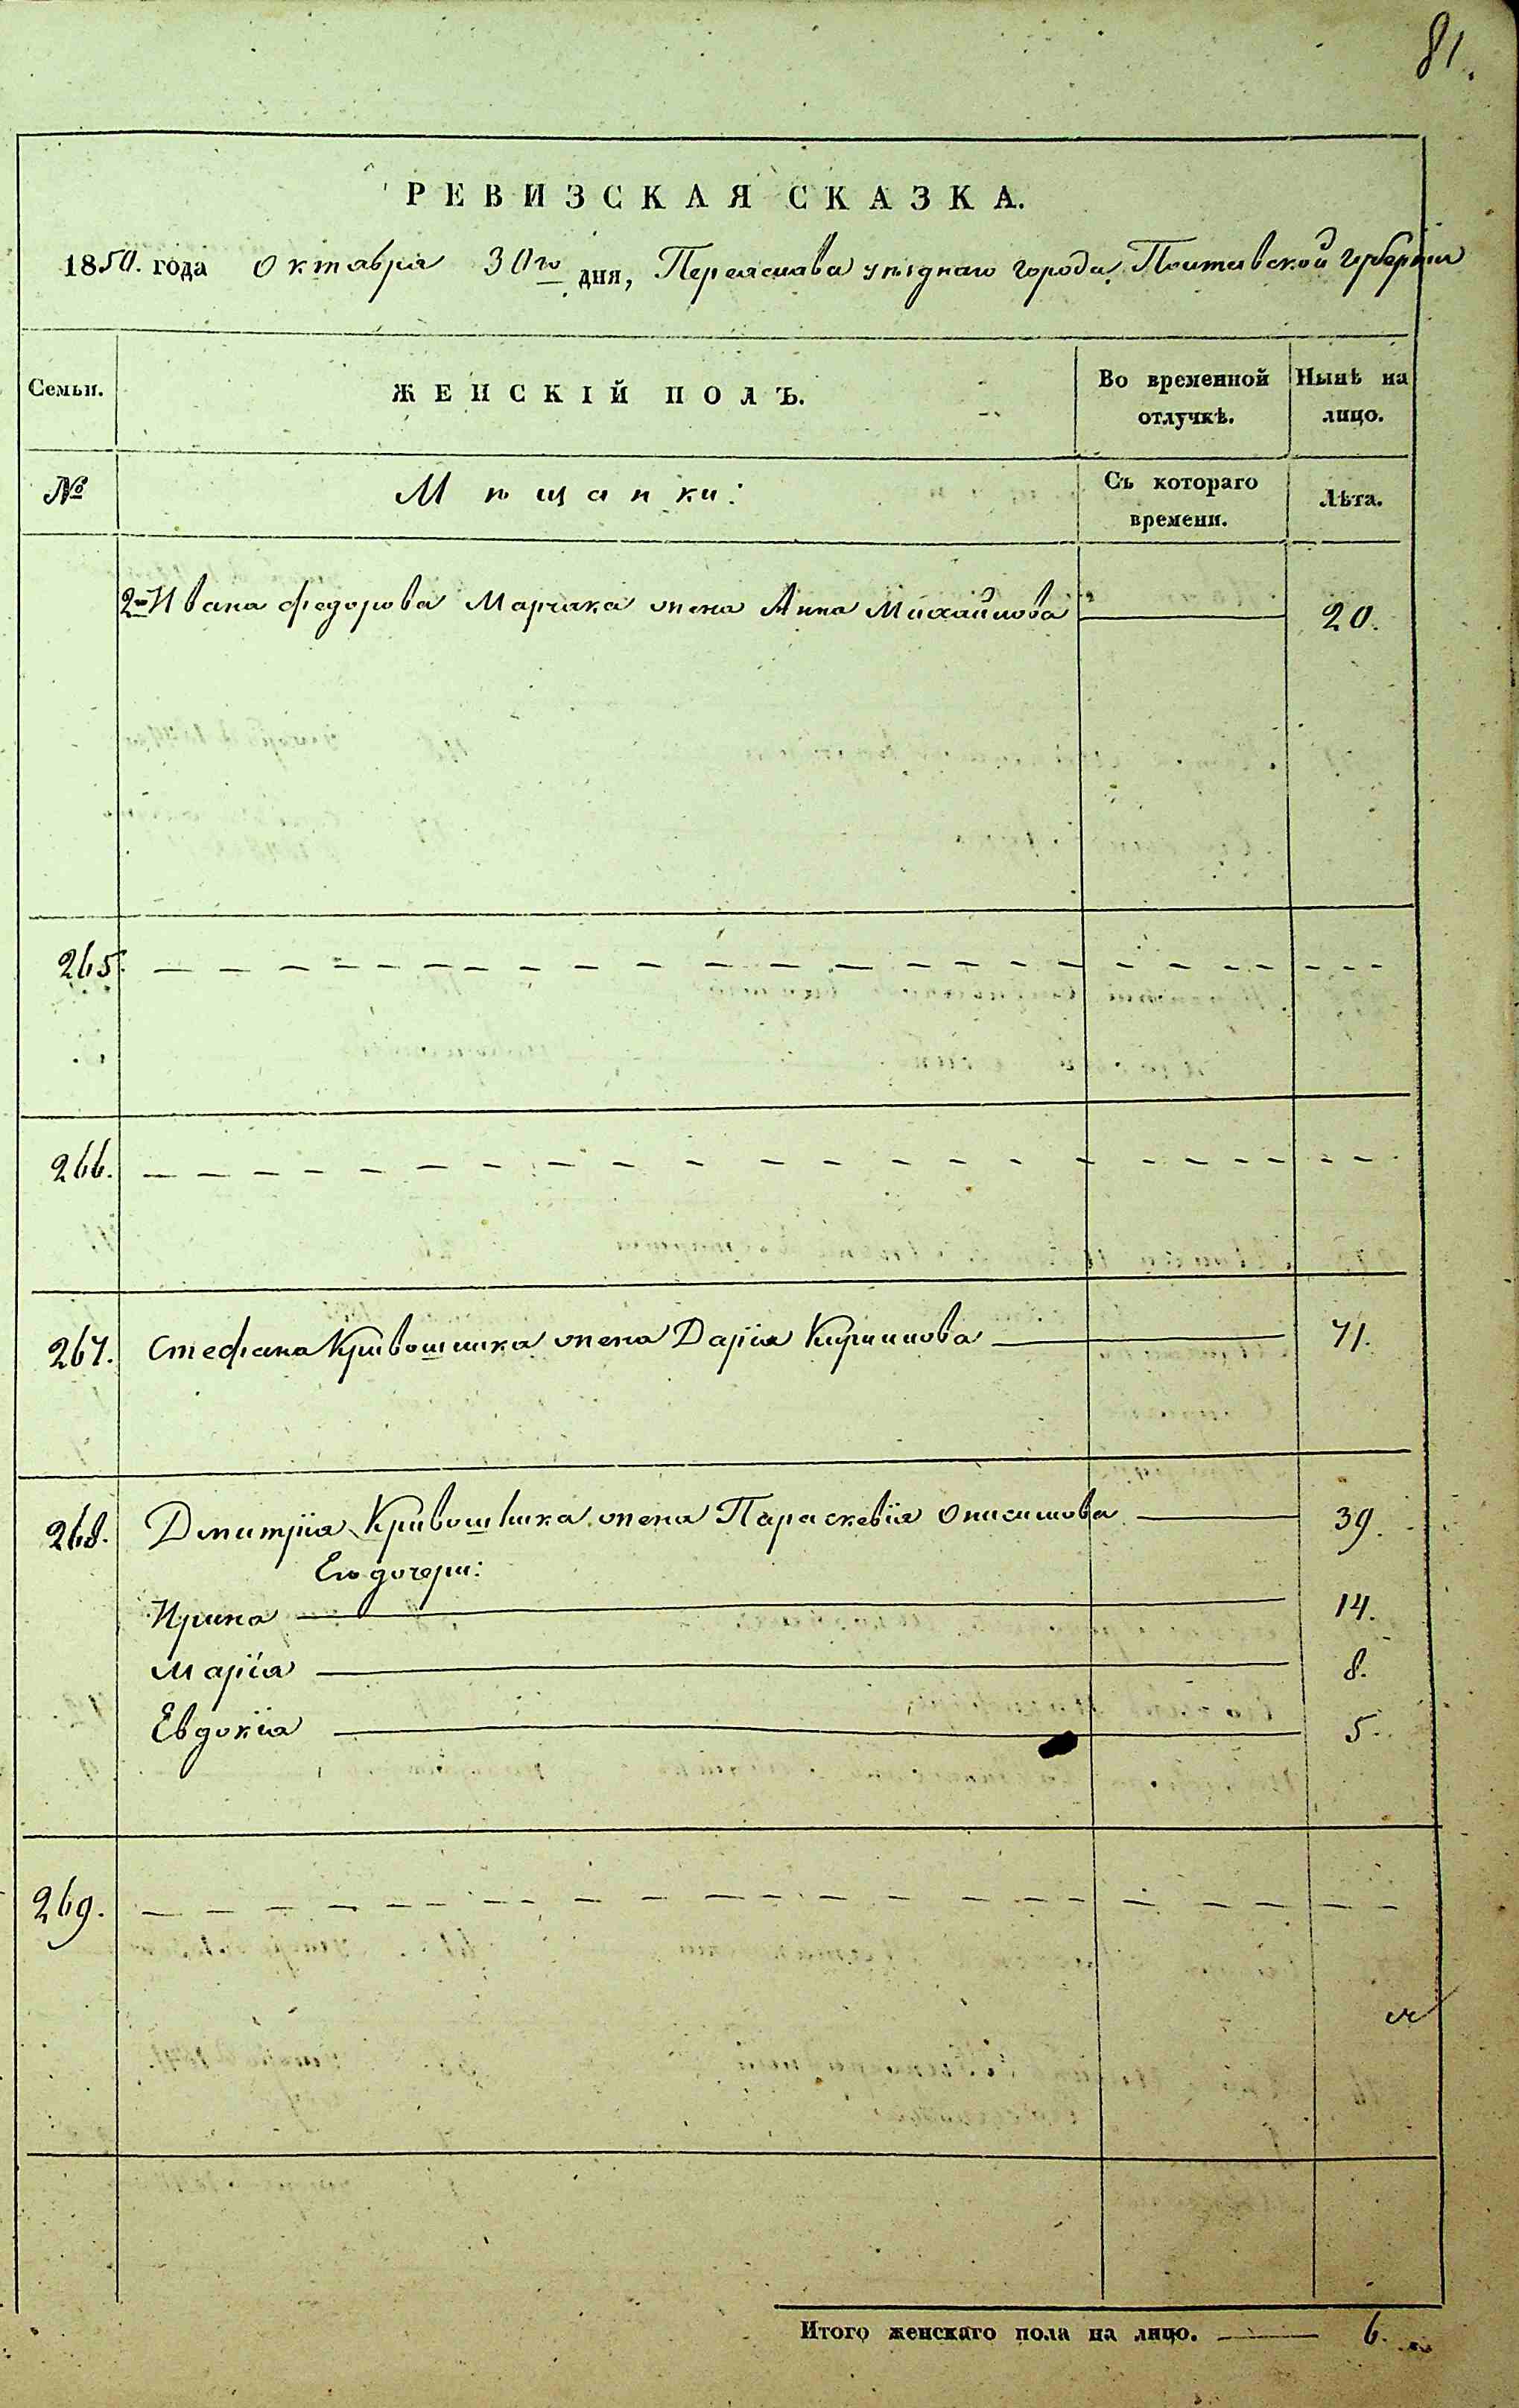 81.
РЕВИЗСКАЯ СКАЗКА.
1850. года октября 30го дня, Переяслава уѣзднаго города Полтавской губерніи
Семьи.
ЖЕНСКІЙ ПОЛЪ.
Во временной отлучкѣ.
Нынѣ на лицо.
№
Мѣщанки:
Съ котораго времени.
Лѣта.
2-й Ивана Федорова Марчака жена Анна Михайлова 20.
265.
266.
267. Стефана Кривошика жена Дарія Кирилова 71.
268. Дмитрія Кривошика жена Параскевія Онисимова 39.
Его дочери:
Ирина 14.
Марія 8.
Евдокія 5.
269.
Итого женскаго пола на лицо. 6.